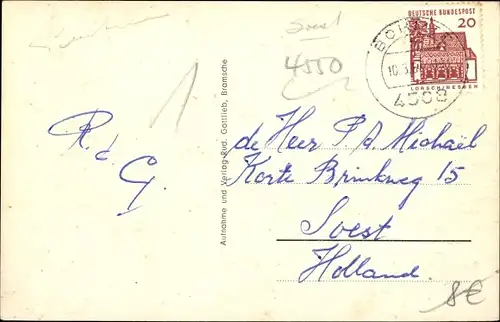 Soest
4550
DEUTSCHE BUNDESPOST
20
LORSCH/HESSEN
4508
1
R. d G.
Aufnahme und Verlag Rud. Gottlieb, Bramsche
de Heer P. A. Michaël
Korte Brinkweg 15
Soest
Holland.
8€